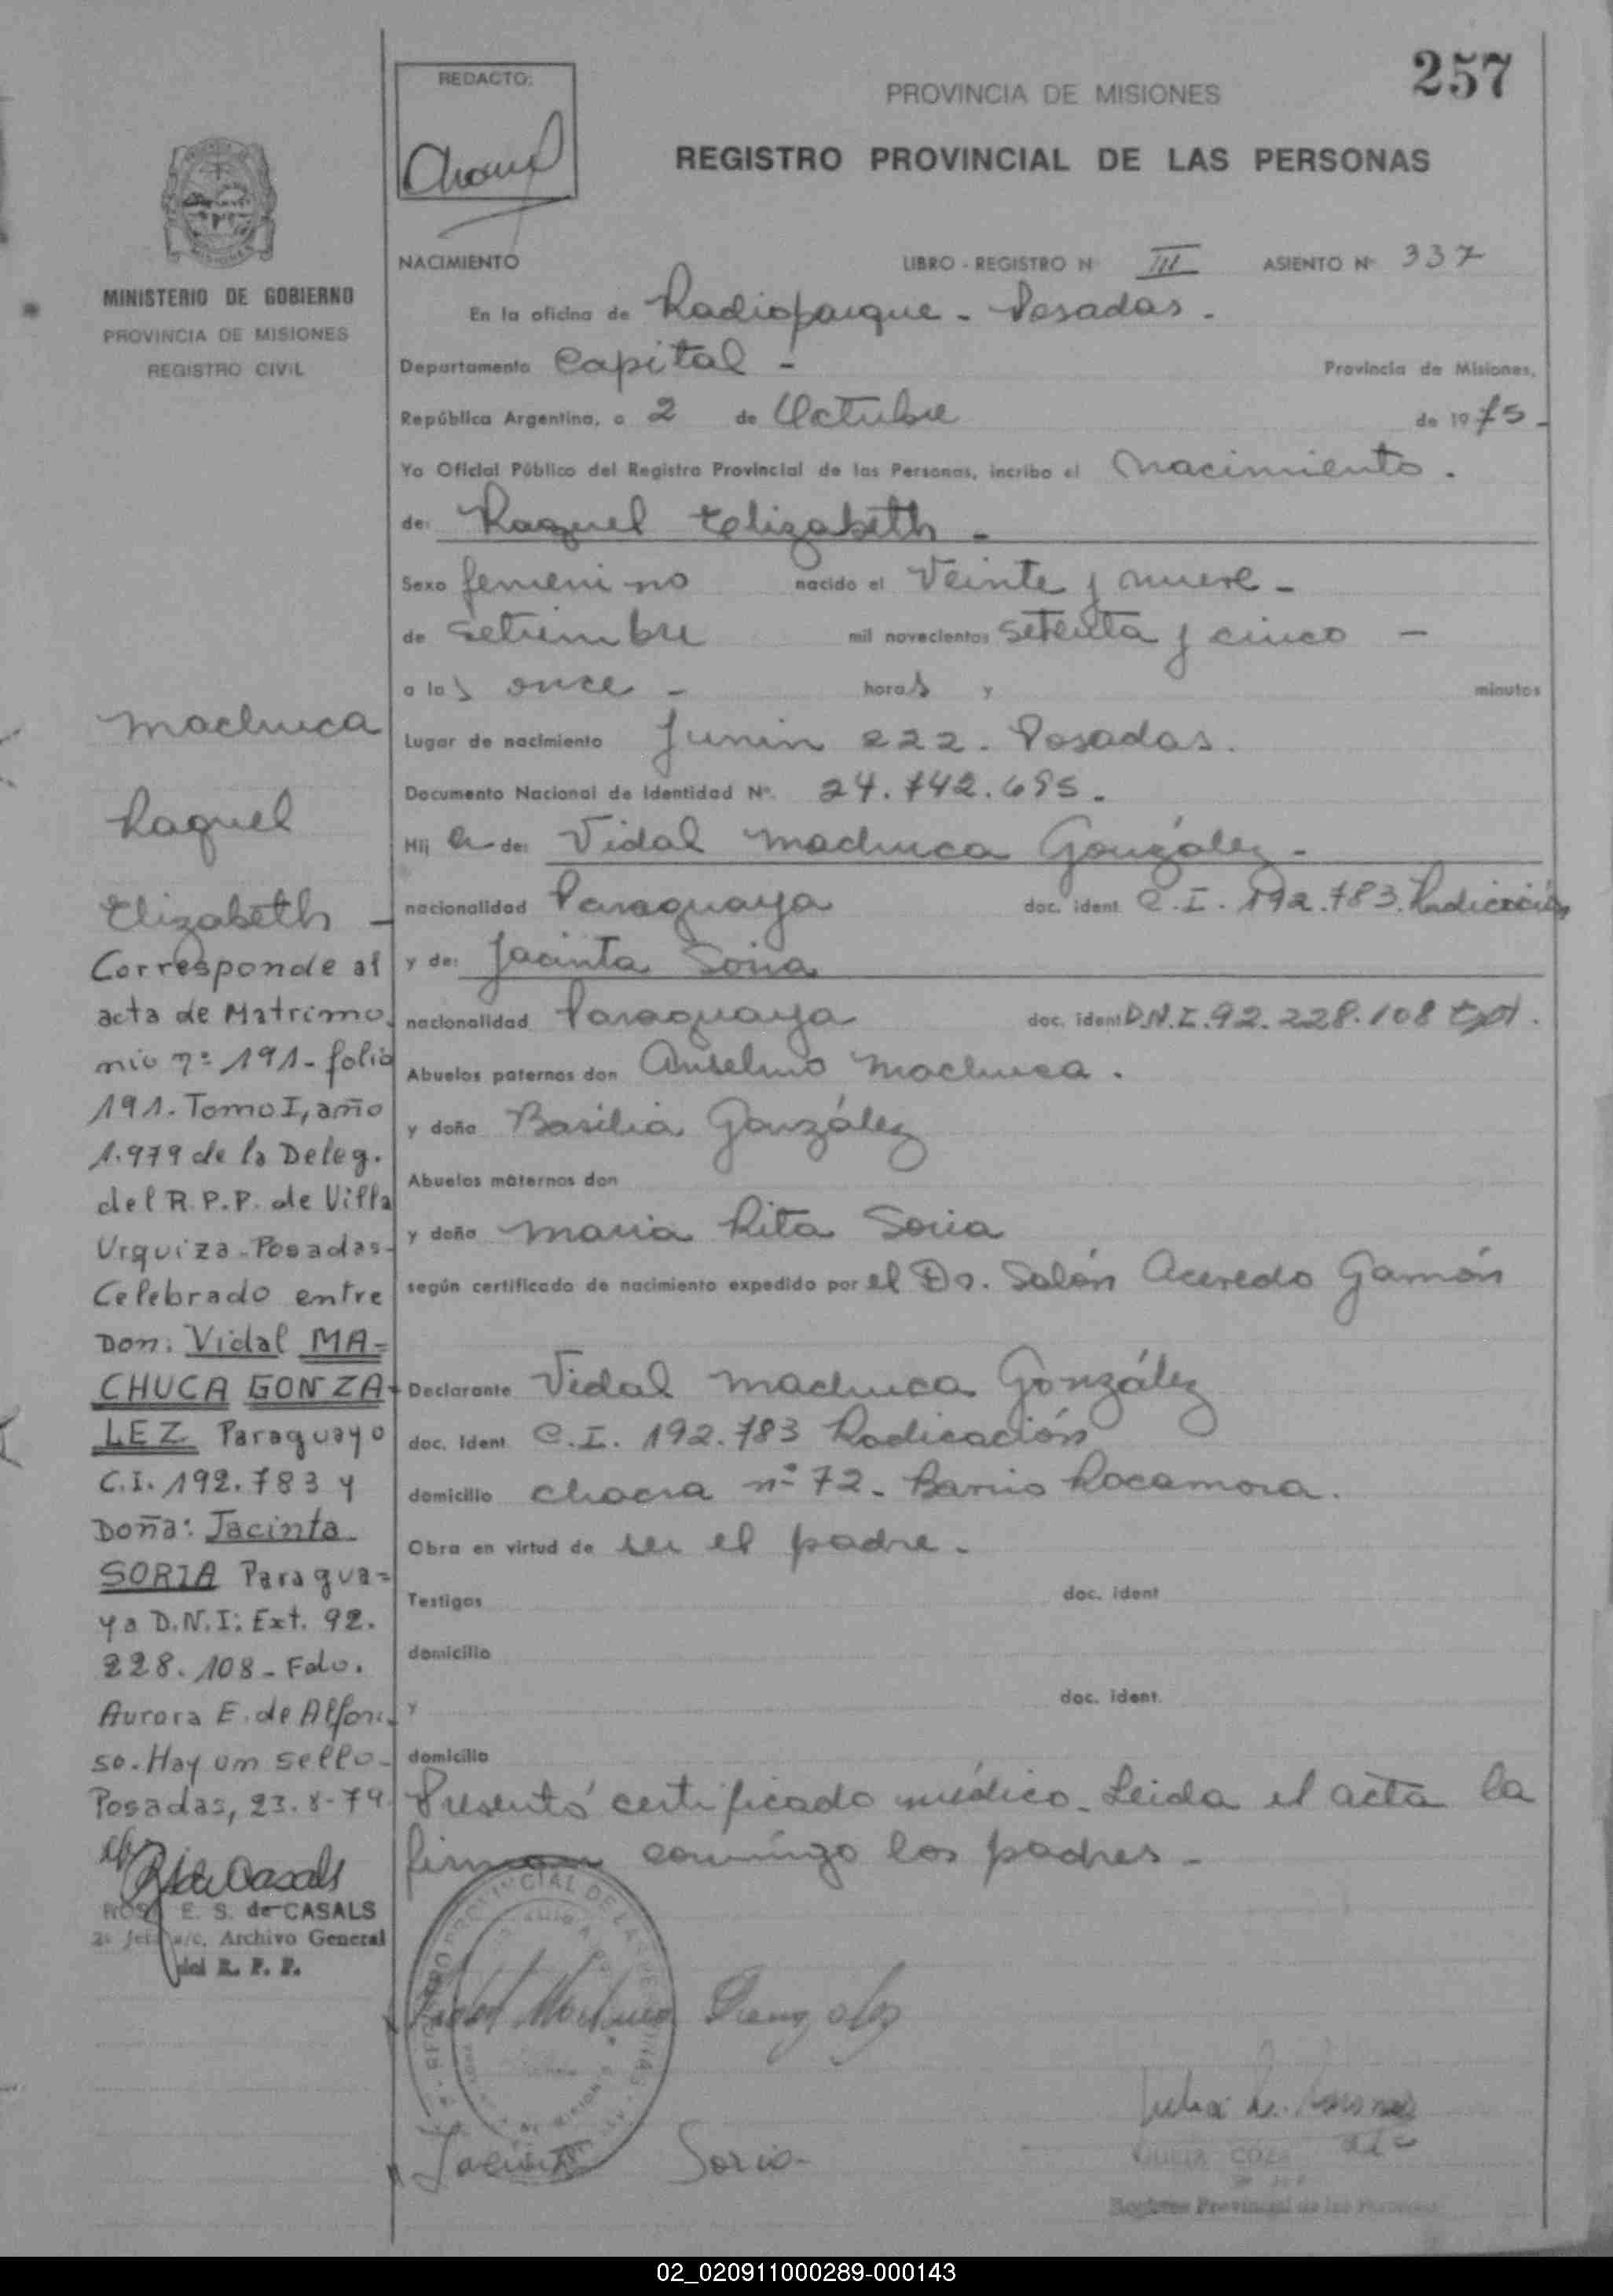 257
REDACTO:
PROVINCIA DE MISIONES
REGISTRO PROVINCIAL DE LAS PERSONAS
MINISTERIO DE GOBIERNO
PROVINCIA DE MISIONES
REGISTRO CIVIL
NACIMIENTO LIBRO - REGISTRO N III ASIENTO Nº 337
En la oficina de Radioparque - Posadas.
Departamento Capital - Provincia de Misiones,
República Argentina, a 2 de Octubre de 1975 -
Yo Oficial Público del Registro Provincial de las Personas, incribo el Nacimiento.
de: Raquel Elizabeth -
Sexo femenino nacido el Veinte y nueve -
de Setiembre mil novecientos setenta y cinco -
a las once - horas y minutos
Lugar de nacimiento Junin 222. Posadas.
Documento Nacional de Identidad Nº 24.742.695.
Hij a de: Vidal Machuca González -
nacionalidad Paraguaya doc. ident. C.I. 192.783. Radicación
y de: Jacinta Soria
nacionalidad Paraguaya doc. ident D.N.I. 92.228.108
Abuelos paternos don Anselmo Machuca.
y doña Basilia González
Abuelos maternos don
y doña Maria Rita Soria
según certificado de nacimiento expedido por el Dr. Solón Acevedo Gamón
Declarante Vidal Machuca González
doc. ident. C.I. 192.783 Radicación
domicilio chacra nº 72 - Barrio Rocamora.
Obra en virtud de ser el padre -
Testigos doc. ident
domicilio
y doc. ident.
domicilio
Presentó certificado médico - Leida el acta la
firman conmigo los padres -
Machuca
Raquel
Elizabeth -
Corresponde al
acta de Matrimo
nio nº 191 - folio
191. Tomo I, año
1.979 de la Deleg.
del R.P.P. de Villa
Urquiza - Posadas -
Celebrado entre
Don: Vidal MA=
CHUCA GONZA-
LEZ Paraguayo
C.I. 192.783 y
Doña: Jacinta
SORIA Paragua=
ya D.N.I: Ext. 92.
228.108 - Fdo.
Aurora E. de Alfon-
so. Hay un sello -
Posadas, 23-8-79
E. S. de CASALS
a/c. Archivo General
del R. P. P.
Vidal Machuca Gonzalez
Jacinta Soria
Registro Provincial de las Personas
02_020911000289-000143